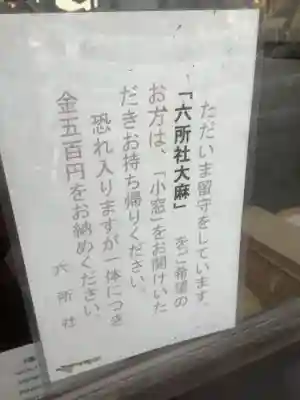 ただいま留守をしています。
「六所社大麻」をご希望の
お方は、「小窓」をお開けいた
だきお持ち帰りください。
恐れ入りますが一体につき
金五百円をお納めください。
六所社